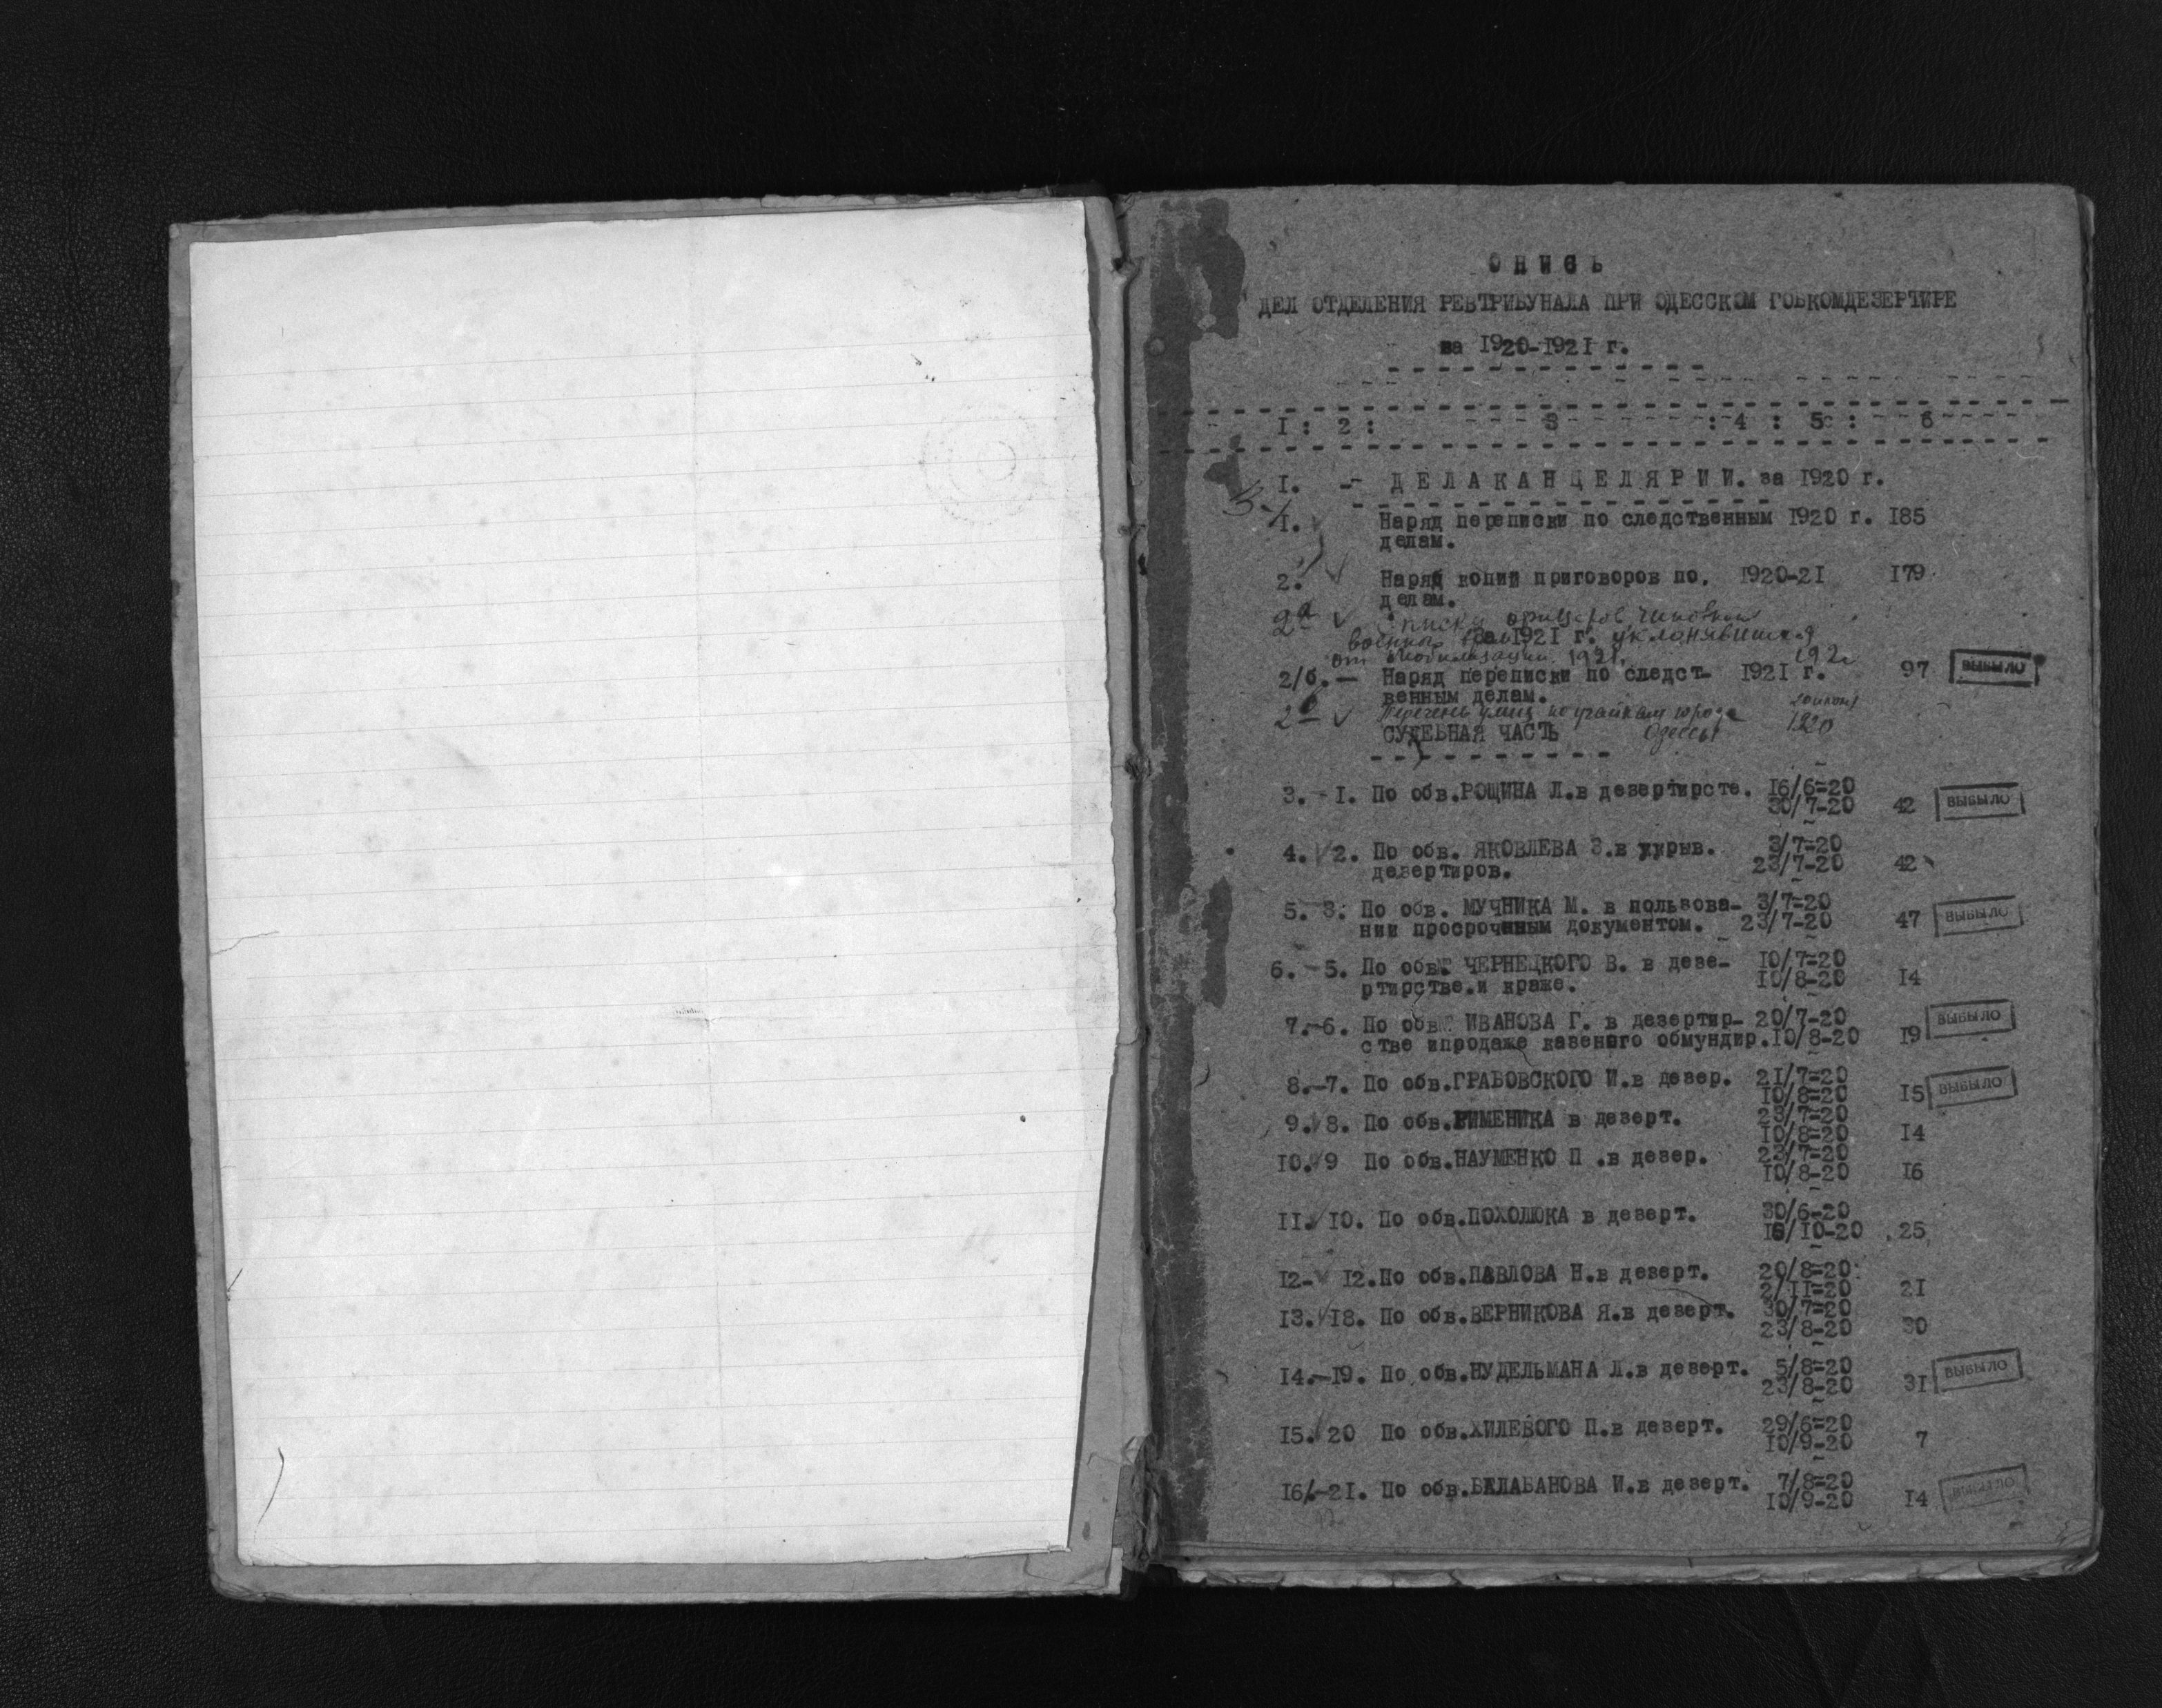 О П И С Ь
ДЕЛ ОТДЕЛЕНИЯ РЕВТРИБУНАЛА ПРИ ОДЕССКОМ ГОБКОМДЕЗЕРТИРЕ
за 1920-1921 г.
I : 2 : 3 : 4 : 5 : 6
I. - Д Е Л А К А Н Ц Е Л Я Р И И. за 1920 г.
I. Наряд переписки по следственным 1920 г. 185
делам.
2. Наряд копии приговоров по. 1920-21 179
делам.
2а Списки офицеров, чиновник
военных За 1921 г. уклонявшихся
от мобилизации 1921.
2/б.— Наряд переписки по следст- 1921 г. 97 ВЫБЫЛО
венным делам.
2 Перечень улиц по участкам города 1920
СУДЕБНАЯ ЧАСТЬ Одессы
3. - I. По обв.РОЩИНА Л.в дезертирсте. 16/6=20
30/7-20 42 ВЫБЫЛО
4. 2. По обв. ЯКОВЛЕВА З.в укрыв. 3/7=20
дезертиров. 23/7-20 42
5. 3. По обв. МУЧНИКА М. в пользова- 3/7=20
нии просроченным документом. 23/7-20 47 ВЫБЫЛО
6. - 5. По обв. ЧЕРНЕЦКОГО В. в дезе- 10/7=20
ртирстве.и краже. 10/8-20 14
7.-6. По обв ИВАНОВА Г. в дезертир- 20/7-20
стве ипродаже казеного обмундир.10/8-20 19 ВЫБЫЛО
8.-7. По обв.ГРАБОВСКОГО И.в дезер. 21/7=20
10/8=20 15 ВЫБЫЛО
9. 8. По обв.РИМЕНИКА в дезерт. 23/7=20
10/8=20 14
10. 9 По обв.НАУМЕНКО П .в дезер. 23/7=20
10/8-20 16
11. 10. По обв.ПОХОЛЮКА в дезерт. 30/6-20
18/10-20 25
12- 12.По обв.ПАВЛОВА Н.в дезерт. 20/8=20
2/11=20 21
13. 18. По обв.ВЕРНИКОВА Я.в дезерт. 30/7=20
23/8-20 30
14.-19. По обв.НУДЕЛЬМАНА Л.в дезерт. 5/8=20
23/8-20 31 ВЫБЫЛО
15. 20 По обв.ХИЛЕВОГО П.в дезерт. 29/6=20
10/9-20 7
16/.-21. По обв.БАЛАБАНОВА И.в дезерт. 7/8=20
10/9-20 14 ВЫБЫЛО